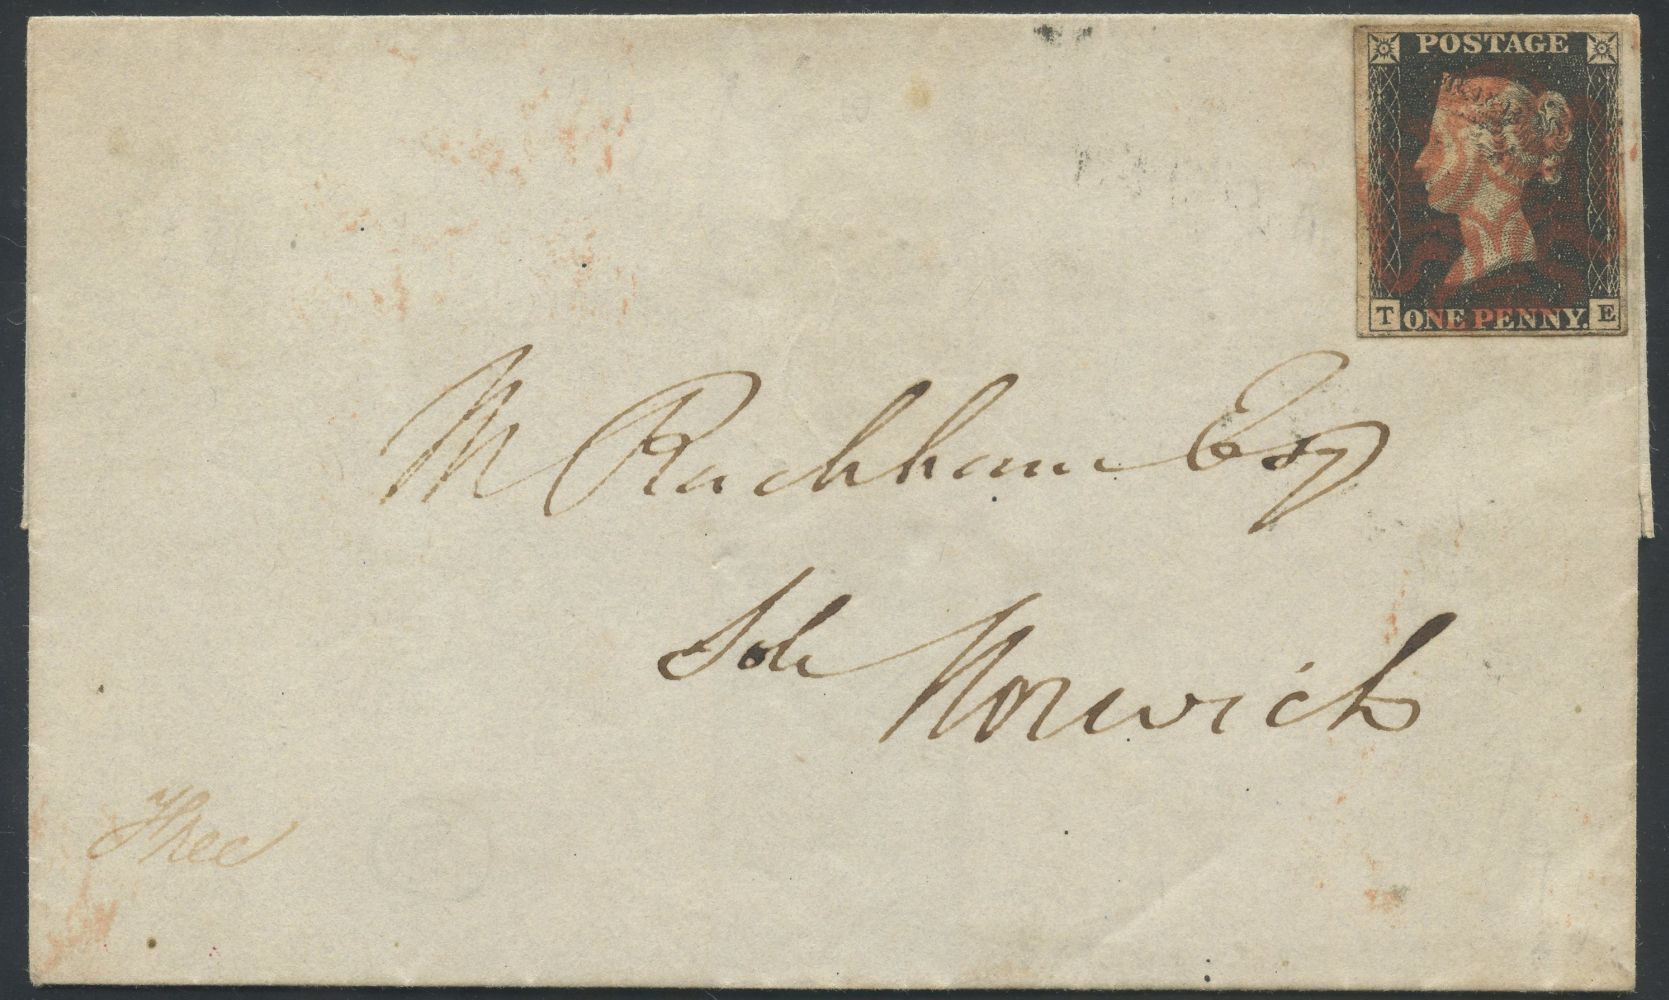 POSTAGE
T ONE PENNY. E
M Rackham Esq
Solr Norwich
Free